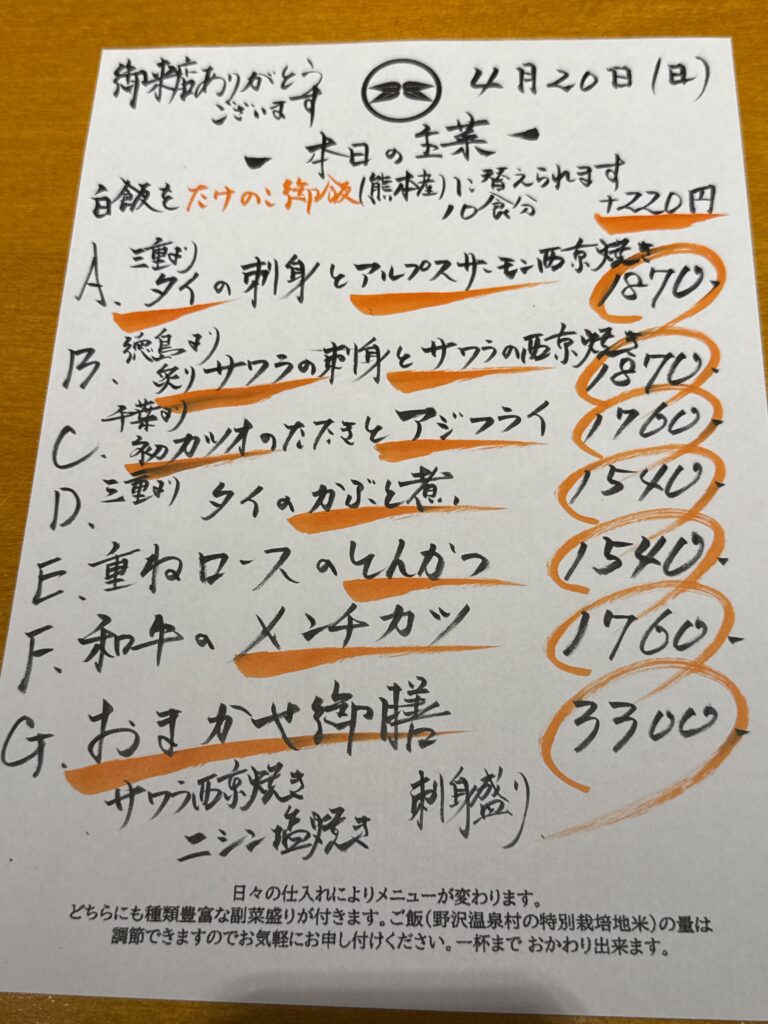 御来店ありがとう
ございます
4月20日(日)
本日の主菜
白飯をたけのこ御飯(熊本産)に替えられます
10食分
+220円
A. 三重より
タイの刺身とアルプスサーモン西京焼き
1870-
B. 徳島より
炙りサワラの刺身とサワラの西京焼き
1870-
C. 千葉より
初カツオのたたきとアジフライ
1760-
D. 三重より
タイのかぶと煮
1540-
E. 重ねロースのとんかつ
1540-
F. 和牛のメンチカツ
1760-
G. おまかせ御膳
3300-
サワラ西京焼き
刺身盛り
ニシン塩焼き
日々の仕入れによりメニューが変わります。
どちらにも種類豊富な副菜盛りが付きます。ご飯(野沢温泉村の特別栽培地米)の量は
調節できますのでお気軽にお申し付けください。一杯まで おかわり出来ます。